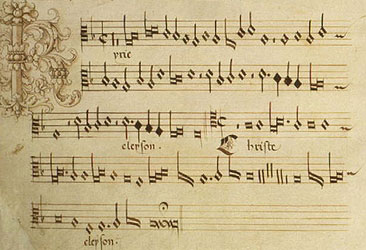 Kyrie
eleyson. Christe
eleyson.